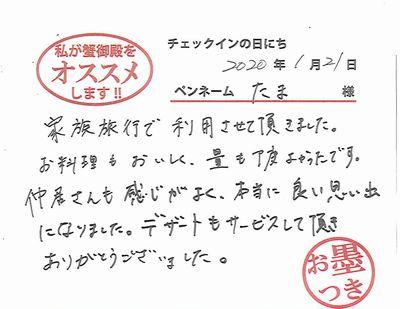 私が蟹御殿を
オススメ
します!!
チェックインの日にち
2020年1月21日
ペンネーム たま 様
家族旅行で利用させて頂きました。
お料理もおいしく、量も丁度よかったです。
仲居さんも感じがよく、本当に良い思い出
になりました。デザートもサービスして頂き
ありがとうございました。
お墨
つき